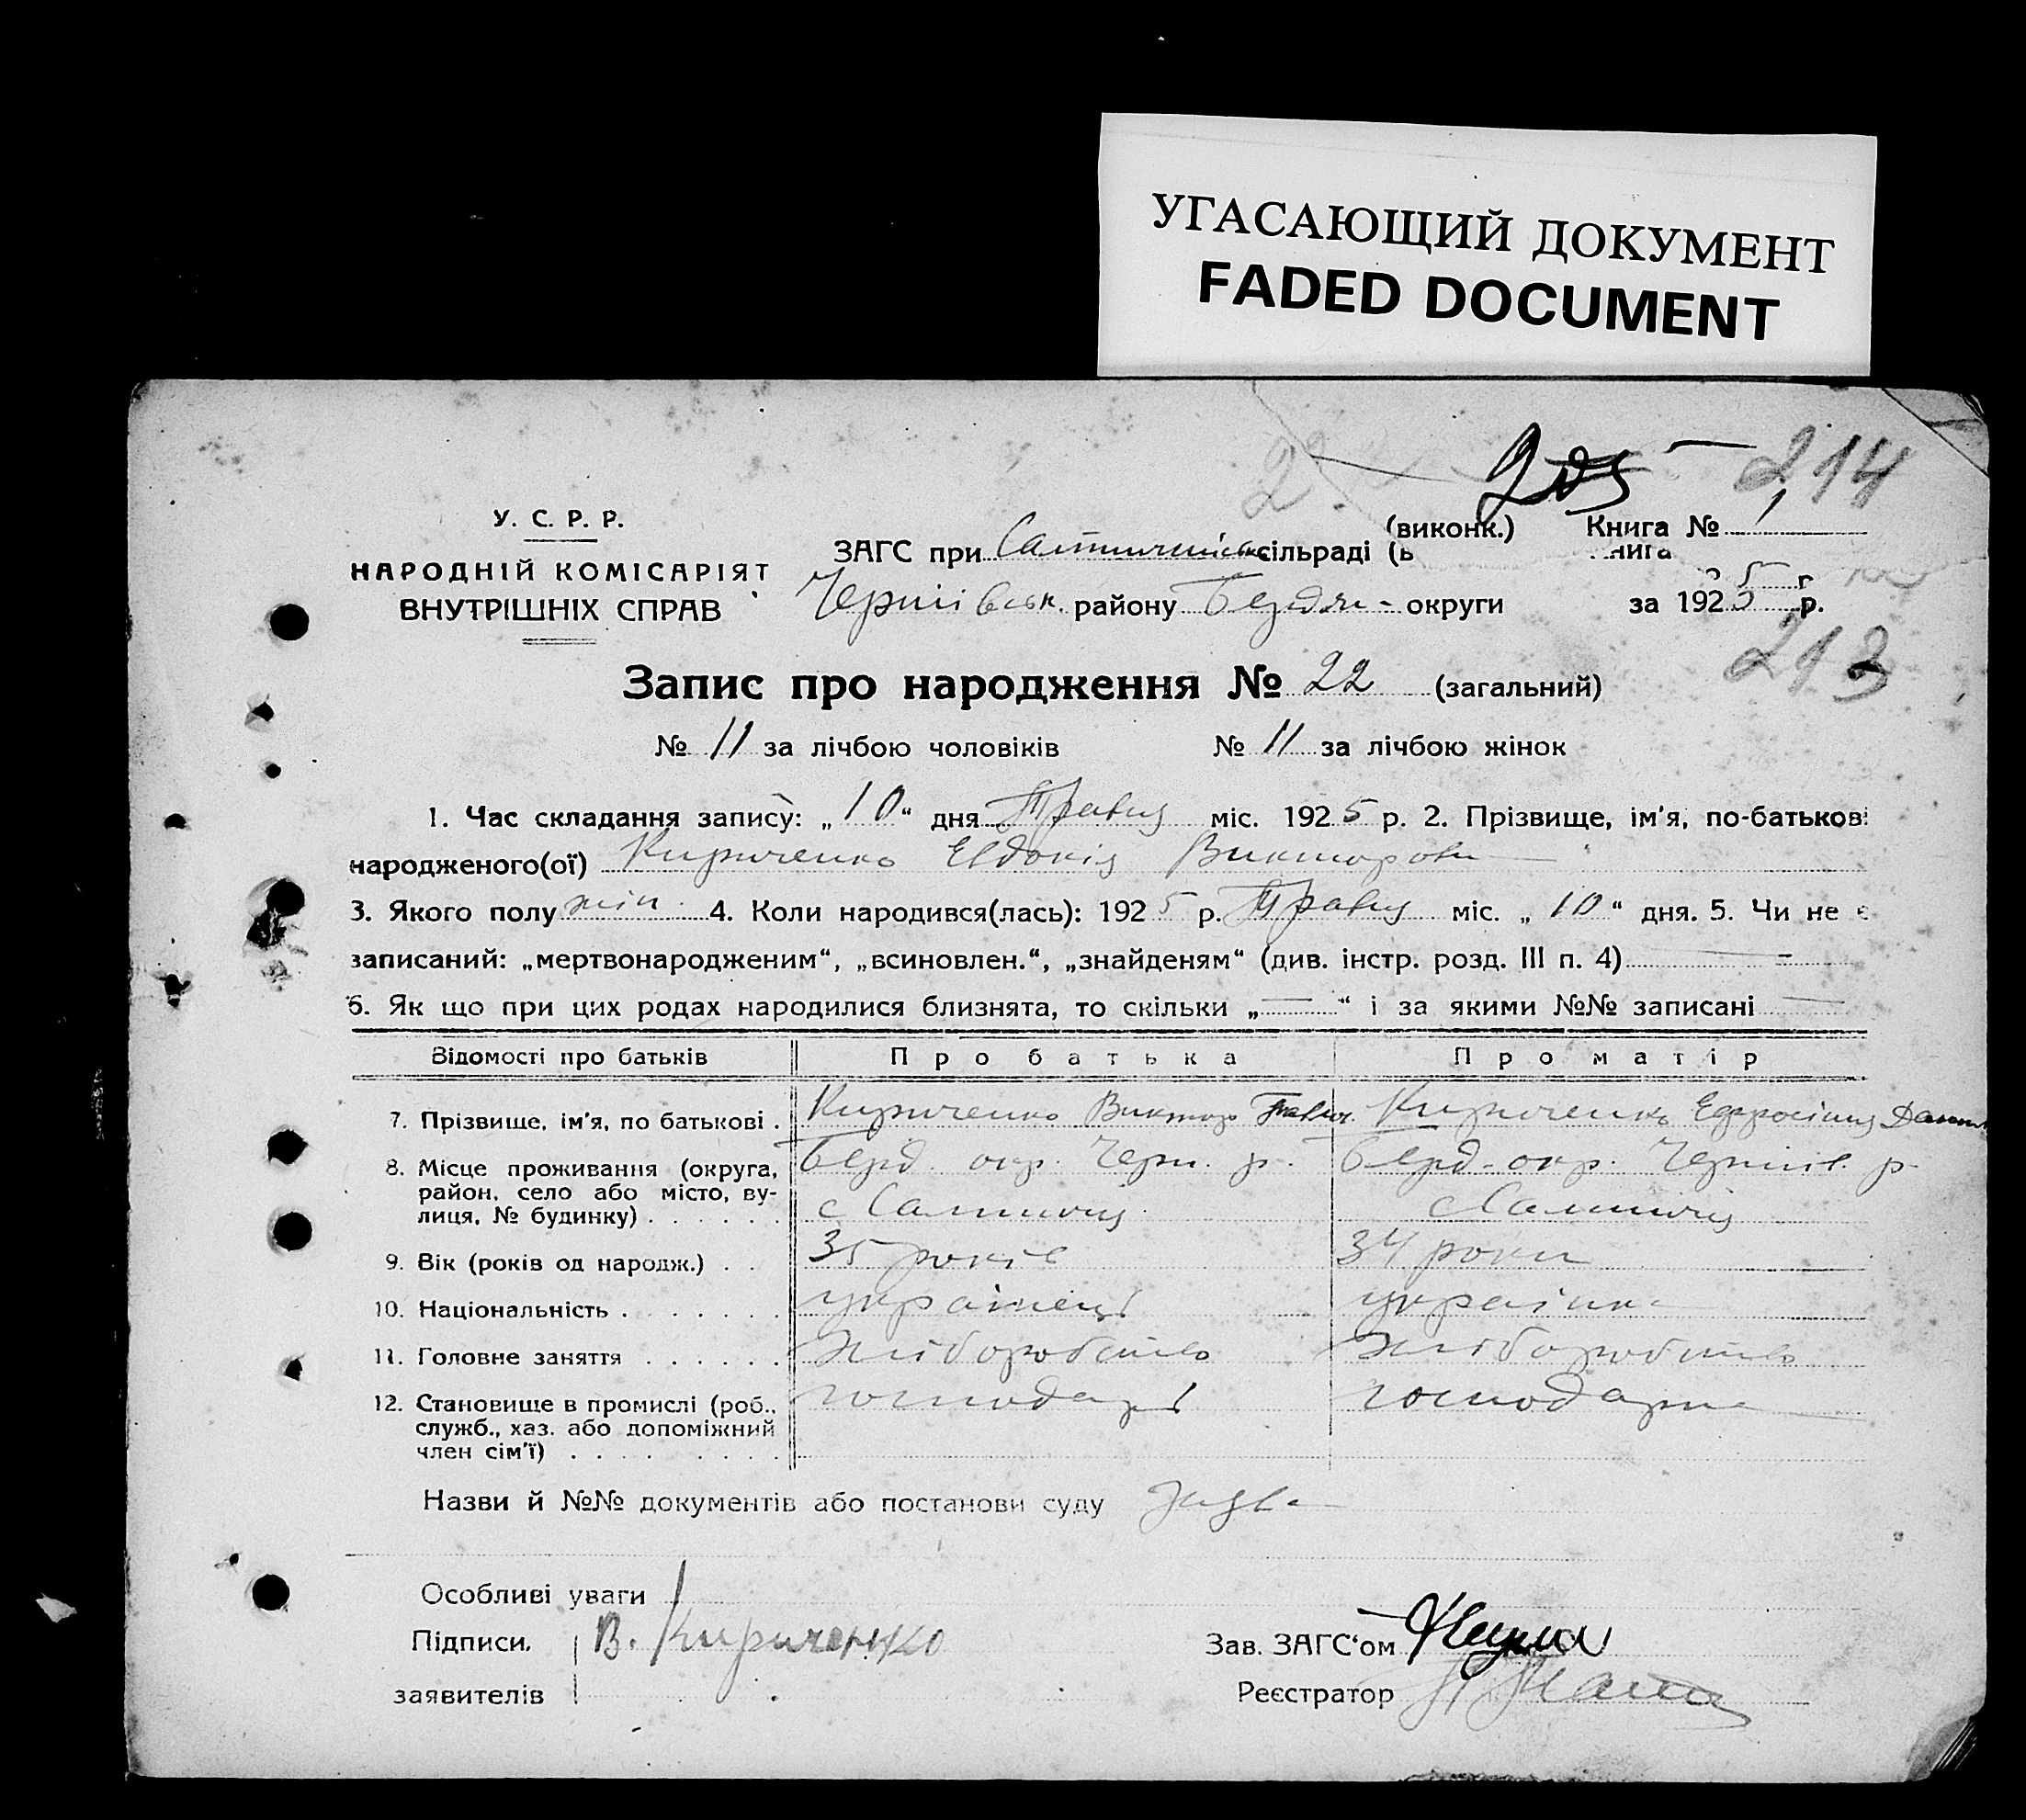 УГАСАЮЩИЙ ДОКУМЕНТ
FADED DOCUMENT
205 214
У. С. Р. Р.
НАРОДНІЙ КОМІСАРІЯТ
ВНУТРІШНІХ СПРАВ
(виконк.) Книга № 1
ЗАГС при сільраді
Чернівськ. району Бердян- округи за 1925 р.
213
Запис про народження № 22 (загальний)
№ 11 за лічбою чоловіків № 11 за лічбою жінок
1. Час складання запису: „10“ дня Травня міс. 1925 р. 2. Прізвище, ім'я, по-батькові
народженого(ої) Кириченко Евдокія Викторовн
3. Якого полу жін. 4. Коли народився(лась): 1925 р. Травня міс. „10“ дня. 5. Чи не є
записаний: „мертвонародженим“, „всиновлен.“, „знайденям“ (див. інстр. розд. III п. 4) —
6. Як що при цих родах народилися близнята, то скільки „—“ і за якими №№ записані —
Відомості про батьків Про батька Про матір
7. Прізвище, ім'я, по батькові . Кириченко Виктор Кириченко Ефросіния
8. Місце проживання (округа, Берд. окр. Черн. р. Берд. окр. Чернів. р.
район, село або місто, ву-
лиця, № будинку) . . . . . . с Салтичія с Салтичія
9. Вік (років од народж.) . . 35 років 34 роки
10. Національність . . . . . . . українець українка
11. Головне заняття . . . . . . хліборобство хліборобство
12. Становище в промислі (роб., господарь господарка
служб., хаз. або допоміжний
член сім'ї) . . . . . . . . .
Назви й №№ документів або постанови суду
Особливі уваги
Підписи. В. Кириченко Зав. ЗАГС'ом
заявителів Реєстратор